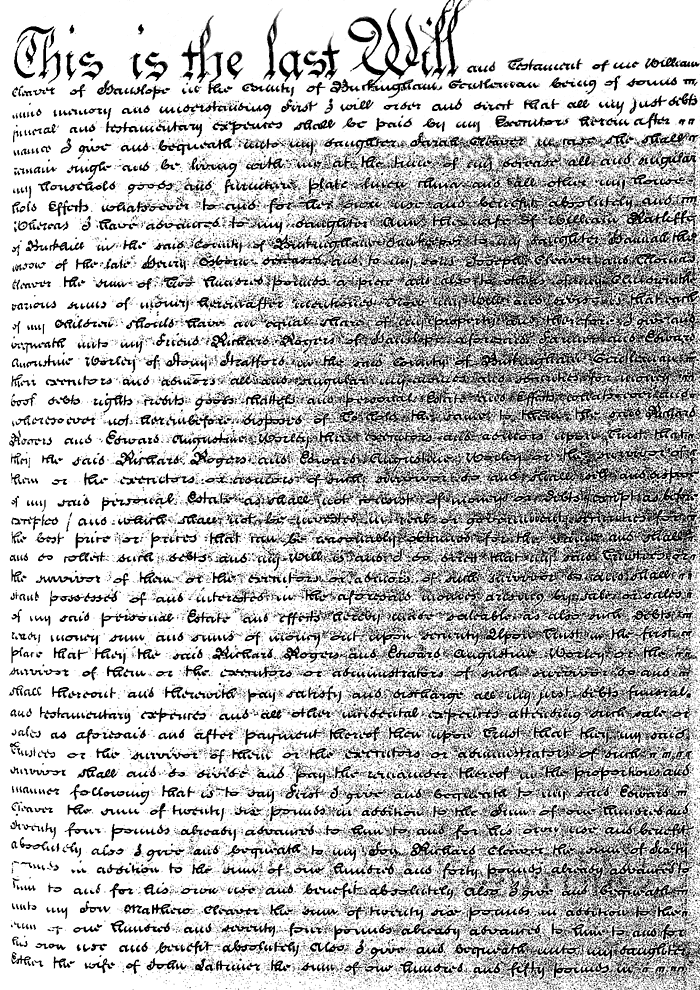 This is the last Will and Testament of me William
Cleaver of Hanslope in the County of Buckingham Gentleman being of sound
mind memory and understanding First I will order and direct that all my just debts
funeral and testamentary expences shall be paid by my Executors herein after
named I give and bequeath unto my daughter Sarah Cleaver in case she shall
remain single and be living with me at the time of my decease all and singular
my household goods and furniture plate linen china and all other my house
hold Effects whatsoever to and for her own use and benefit absolutely And
Whereas I have advanced to my daughter Ann the wife of William Ratliffe
of in the said County of Buckingham to my daughter Hannah the
widow of the late Henry Osborn deceased and to my sons Joseph Cleaver and Thomas
Cleaver the sum of two hundred pounds a piece and also to others of my Children the
various sums of money hereinafter mentioned Now my Will and is that each
of my Children should have an equal share of my property and therefore I give and
bequeath unto my friend Richard Rogers of Hanslope aforesaid and Edward
Augustine Worley of Stony Stratford in the said County of Buckingham Gentleman
their executors and admors all and singular my monies and securities for money
book debts rights credits goods chattels and personal Estate and Effects whatsoever and
wheresoever not hereinbefore disposed of To hold the same to them the said Richard
Rogers and Edward Augustine Worley their executors and admors upon trust that
they the said Richard Rogers and Edward Augustine Worley or the survivor of
them or the executors or admors of such survivor do and shall sell and dispose
of my said personal Estate as shall not consist of money or debts except as before
excepted / and which shall not be invested in real or government securities for
the best price or prices that can be reasonably obtained for the same and shall
and do collect such debts and my Will is and I do direct that my said Trustees or
the survivor of them or the executors or admors of such survivor do and shall
stand possessed of and interested in the aforesaid monies arising by sale or sales
of my said personal Estate and effects hereby made saleable as also such debts
ready money sum and sums of money out upon security Upon trust in the first
place that they the said Richard Rogers and Edward Augustine Worley or the
survivor of them or the executors or administrators of such survivor do and
shall thereout and therewith pay satisfy and discharge all my just debts funeral
and testamentary expences and all other incidental expences attending such sale or
sales as aforesaid and after payment thereof then upon Trust that they my said
Trustees or the survivor of them or the executors or administrators of such
survivor shall and do divide and pay the remainder thereof in the proportions and
manner following that is to say First I give and bequeath to my said Edward
Cleaver the sum of twenty six pounds in addition to the sum of one hundred and
seventy four pounds already advanced to him to and for his own use and benefit
absolutely also I give and bequeath to my Son Richard Cleaver the sum of sixty
pounds in addition to the sum of one hundred and forty pounds already advanced to
him to and for his own use and benefit absolutely Also I give and bequeath
unto my Son Matthew Cleaver the sum of twenty six pounds in addition to the
sum of one hundred and seventy four pounds already advanced to him to and for
his own use and benefit absolutely Also I give and bequeath unto my daughter
Esther the wife of John Lattimer the sum of one hundred and fifty pounds in